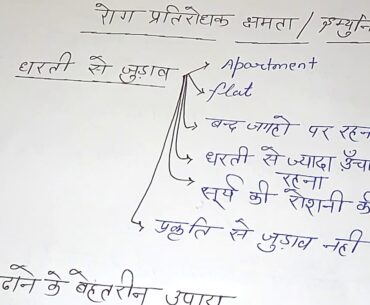 रोग प्रतिरोधक क्षमता /
धरती से जुड़ाव
Apartment
flat
बन्द जगहो पर
धरती से ज्यादा
रहना
सूर्य की रोशनी
प्रकृति से जुड़ाव नही
के बेहतरीन उपाय